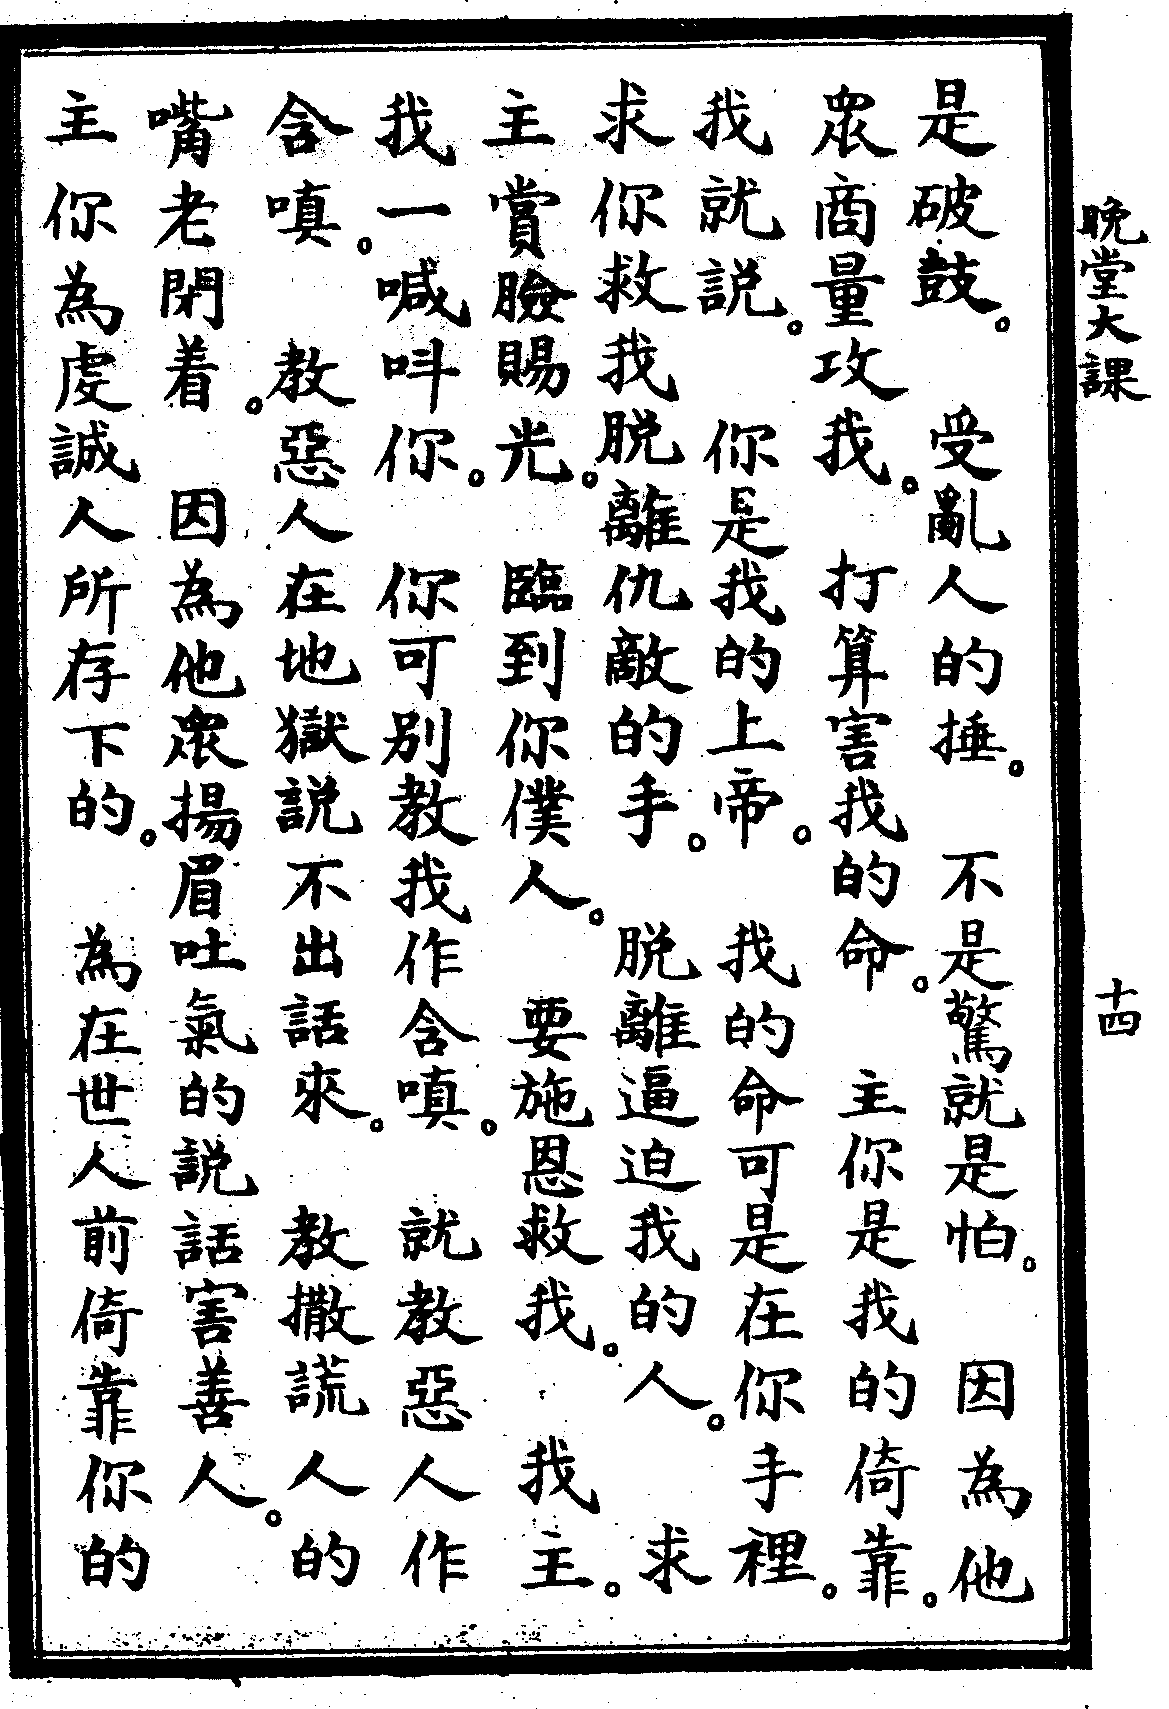 晚堂大課
十四
是破鼓。　受亂人的捶。　不是驚就是怕。　因為他
眾商量攻我。　打算害我的命。　主你是我的倚靠。
我就説。　你是我的上帝。　我的命可是在你手裡。
求你救我脱離仇敵的手。　脱離逼迫我的人。　求
主賞臉賜光。　臨到你僕人。　要施恩救我。　我主。
我一喊呌你。　你可別教我作含嗔。　就教惡人作
含嗔。　教惡人在地獄説不出話來。　教撒謊人的
嘴老閉着。　因為他眾揚眉吐氣的説話害善人。
主你為虔誠人所存下的。　為在世人前倚靠你的